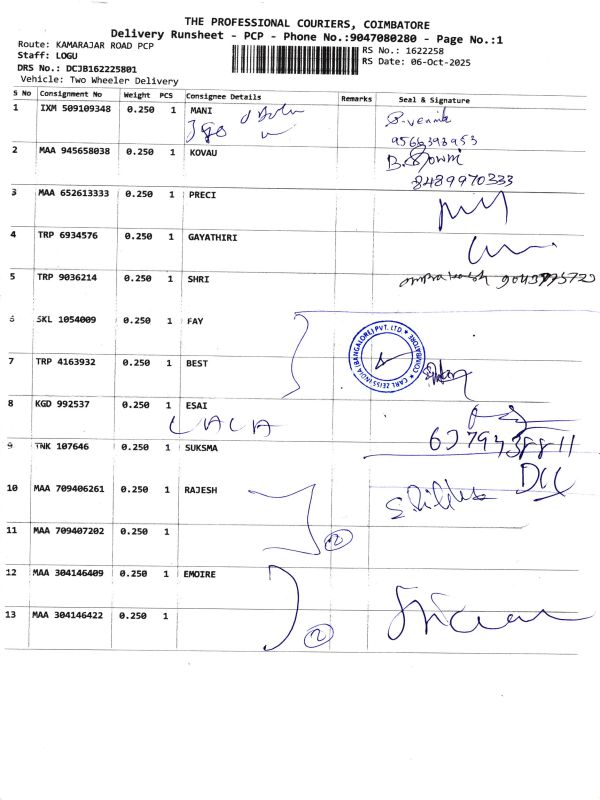 THE PROFESSIONAL COURIERS, COIMBATORE
Delivery Runsheet - PCP - Phone No.:9047080280 - Page No.:1
Route: KAMARAJAR ROAD PCP
Staff: LOGU
DRS No.: DCJB162225801
Vehicle: Two Wheeler Delivery
RS No.: 1622258
RS Date: 06-Oct-2025
S No Consignment No Weight PCS Consignee Details Remarks Seal & Signature
1 IXM 509109348 0.250 1 MANI
9566393953
2 MAA 945658038 0.250 1 KOVAU
8489970333
3 MAA 652613333 0.250 1 PRECI
4 TRP 6934576 0.250 1 GAYATHIRI
5 TRP 9036214 0.250 1 SHRI
6 SKL 1054009 0.250 1 FAY
CARL ZEISS INDIA (BANGALORE) PVT. LTD. COIMBATORE
7 TRP 4163932 0.250 1 BEST
8 KGD 992537 0.250 1 ESAI
LALA
9 TNK 107646 0.250 1 SUKSMA
10 MAA 709406261 0.250 1 RAJESH
11 MAA 709407202 0.250 1
2
12 MAA 304146409 0.250 1 EMOIRE
13 MAA 304146422 0.250 1
2